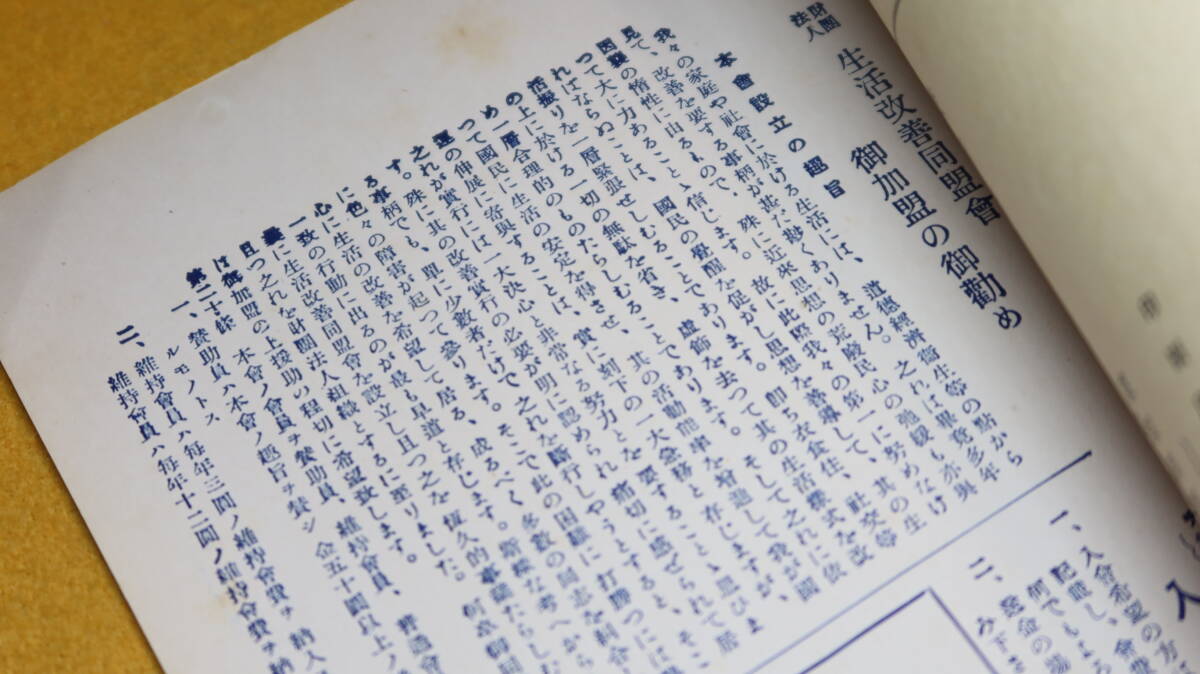 財團
法人
生活改善同盟會
御加盟の御勸め
本會設立の趣旨
我々の家庭や社會に於ける生活には、道德經濟衞生等の點から
見て、改善を要する事柄が甚だ尠くありません。之れは畢竟多年
因襲の惰性に由るものて、殊に近來思想の荒廢民心の弛緩も亦與
つて大に力あることゝ信じます。故に此際我々の第一に努めなけ
ればならぬことは、國民の覺醒を促がし思想を善導して、其の生
活振りを一層緊張せしむることであります。卽ち衣食住、社交等
の上に於ける一切の無駄を省き、虛飾を去つて其の生活樣式を改
め一層合理的のものたらしむることであります。そして之れに依
つて國民に生活の安定を得させ、其の活動能率を增進して我が國
運の伸展に寄與することは、實に刻下の一大急務と存じますが、
之れが實行には一大決心と非常なる努力とを要することゝ思ひま
す。殊に其の改善實行の必要が明に認められ痛切に感ぜられて居
る事柄でも、單に少數者だけて之れを斷行しやうとすると、そこ
に色々の障害が起つて參ります。そこで此の困難に打勝つには
心に生活の改善を希望して居る、成るべく多數の同志を糾合
一致の行動に出るのが最も早道と存じます。斯樣な考へから
義に生活改善同盟會を設立し且つ之を恆久的事業たらしむ
且つ之れを財團法人組織とするに至りました。
は御加盟の上援助の程切に希望致します。
第二十條 本會ノ會員ヲ贊助員、維持會員、普通會
一、贊助員ハ本會ノ趣旨ヲ贊シ金五十圓以上ノ
ルモノトス
二、維持會員ハ每年三圓ノ維持會費ヲ納入
維持會員ハ每年十二圓ノ維持會費ヲ納
入
一、入會希望の方
記載し、會費
何でもよろ
二、
み下さ